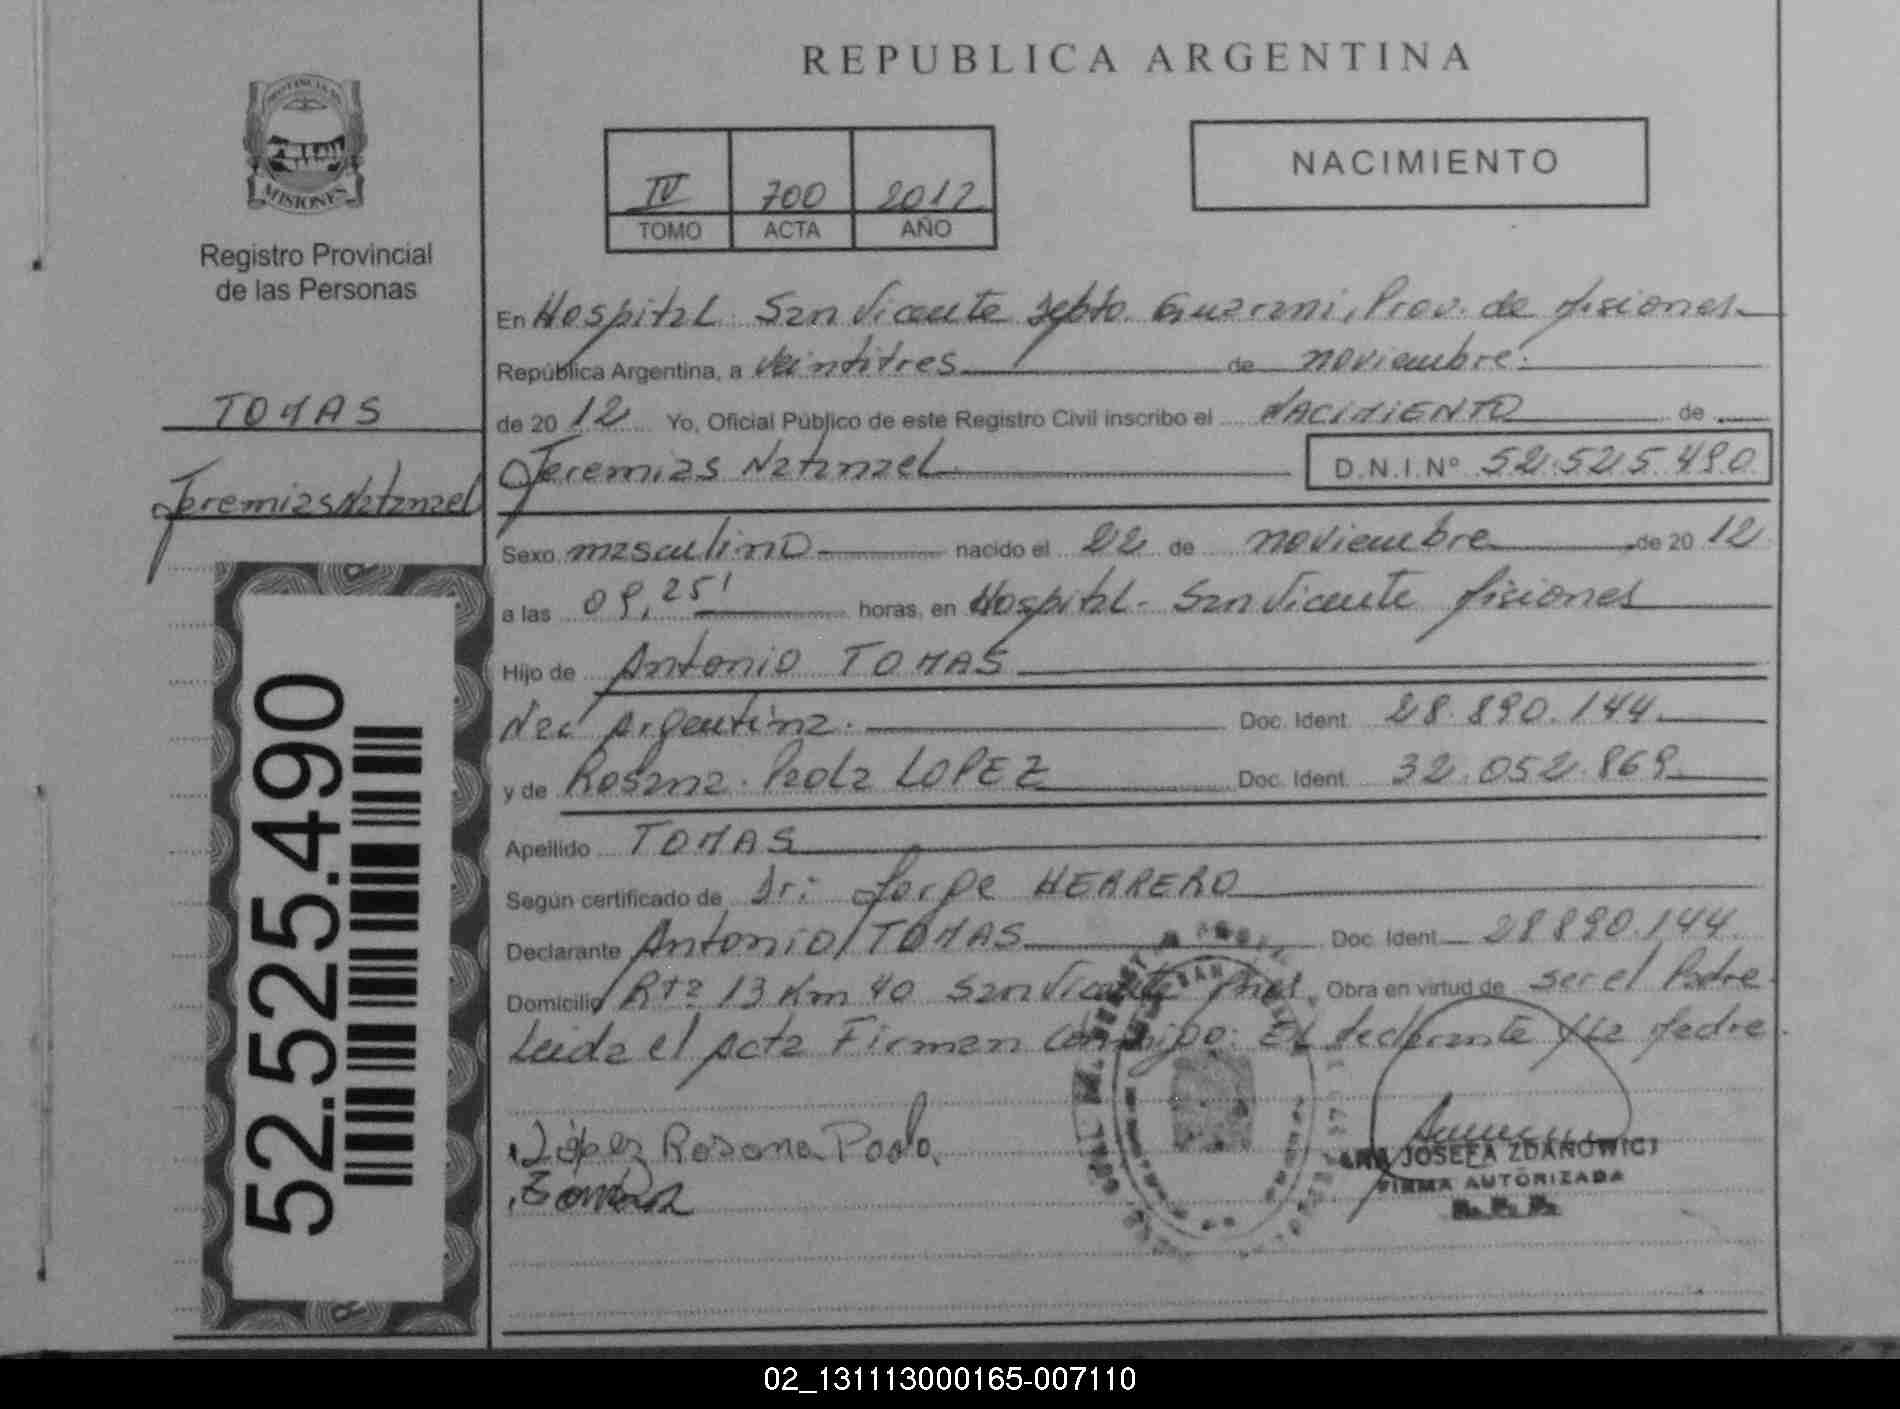 REPUBLICA ARGENTINA
PROVINCIA DE
MISIONES
Registro Provincial
de las Personas
IV 700 2012
TOMO ACTA AÑO
NACIMIENTO
TOMAS
Jeremias Natanael
52.525.490
En Hospital San Vicente Depto. Guarani, Prov. de Misiones
República Argentina, a Veintitres de noviembre
de 20 12 Yo, Oficial Público de este Registro Civil inscribo el NACIMIENTO de
Jeremias Natanael D.N.I.Nº 52.525.490
Sexo masculino nacido el 22 de noviembre de 20 12
a las 09,25' horas, en Hospital - San Vicente Misiones
Hijo de Antonio TOMAS
Nac Argentina. Doc. Ident. 28.890.144
y de Rosana Paola LOPEZ Doc. Ident. 32.052.869
Apellido TOMAS
Según certificado de Dr: Jorge HERRERO
Declarante Antonio TOMAS Doc. Ident. 28890.144
Domicilio Rta 13 Km 40 San Vicente Mnes. Obra en virtud de ser el Padre
Leida el Acta Firman conmigo: El declarante y la Madre
López Rosana Paola
JOSEFA ZDANOWICZ
FIRMA AUTORIZADA
02_131113000165-007110